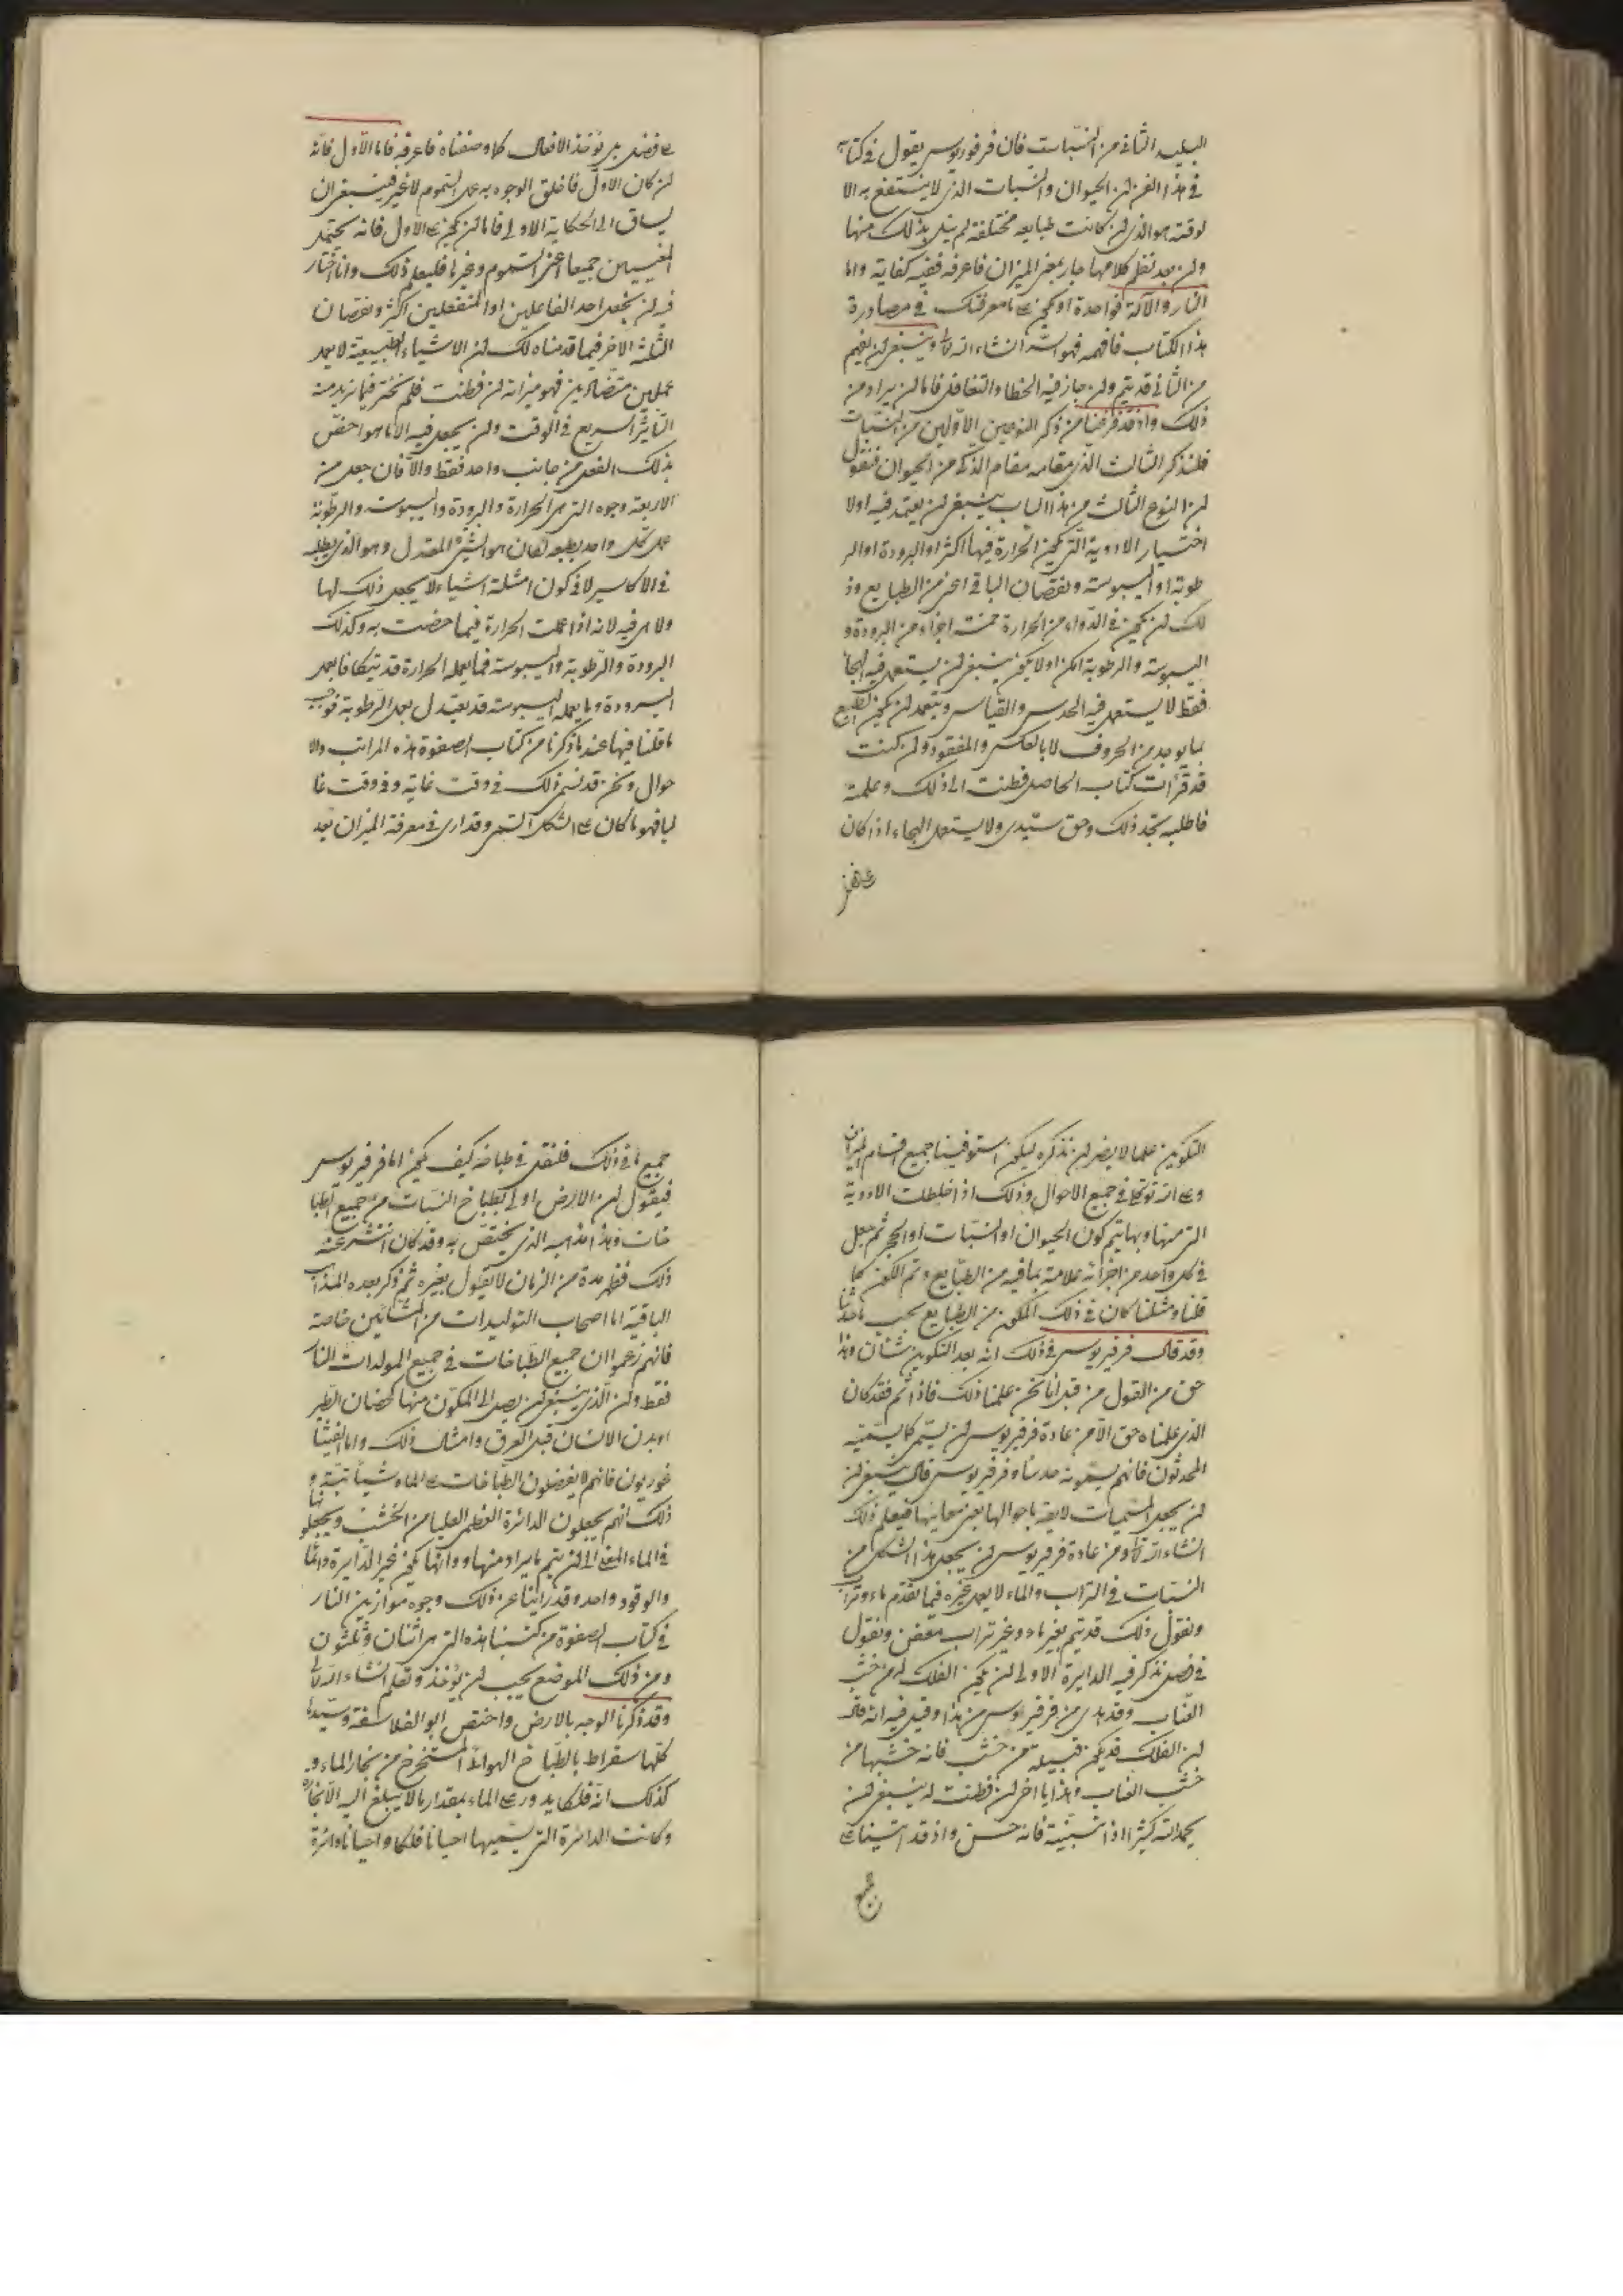 البليد الثانى من النبات فان فرفوريوس يقول فى كتابه
فى هذا الفن ان الحيوان والنبات الذى لا ينتفع به الا
لوقته هو الذى ان كانت طبايعه مختلفة لم يتل بذلك منها
وان بعد نظم كلامها جار بمغير الميزان فاعرفه ففيه كفاية واما
النار والآلة فواحدة او يكون على ما معرفتك فى مصادرة
هذا الكتاب فافهمه فهو انشاء الله تعالى وينبغى ان يفهم
من الثانى قد يتم وان جاز فيه الخطاء والتغافل فاما ان يراد من
ذلك واذ قد فرغنا من ذكر النوعين الاولين من النبات
فلنذكر الثالث الذى مقامه مقام الذكر من الحيوان فنقول
ان النوع الثالث من هذا الباب ينبغى ان يعتمد فيه اولا
اختيار الادوية التى يكون الحرارة فيها اكثر او البرودة او الر
طوبة او اليبوسة ونقصان الباقى اعنى من الطبايع وذ
لك ان يكون فى الدواء من الحرارة خمسة اجزاء من البرودة و
اليبوسة والرطوبة امكن اولا يكون ينبغى ان يستعمل فيه الهجا
فقط لا يستعمل فيه الحدس والقياس ويتعمد ان يكون الطبع
بما يوجد من الحروف لا بالعكس والمفقود وان كنت
قد قرأت كتاب الحاصل فطنت الى ذلك وعلمته
فاطلبه تجد ذلك وحق سيدى ولا يستعمل الهجاء اذا كان
على فض
على فض بل تؤخذ الافعال كما وصفناه فاعرفه فاما الاول فانه
ان كان الاول فاخلق الوجوه به عمل السموم لا غير فينبغى ان
يساق الى الحكاية الاولى فاما ان يكون على الاول فانه يحتمل
المغيبين جميعا اعنى السموم وغيرها فليعلم ذلك وانا اختار
فيه ان يجعل احد الفاعلين او المنفعلين اكثر ونقصان
الثلثة الاخر فيما قدمناه لك ان الاشياء الطبيعية لا يعمل
عملين متضادين فهو ميزانه ان فطنت فلم نختر فيما نريد منه
التاثير السريع فى الوقت وان يجعل فيه الا ما هو اخص
بذلك الفعل من جانب واحد فقط والا فان جعل من
الاربعة وجوه التى هى الحرارة والبرودة واليبوسة والرطوبة
عمل كل واحد بطبعه لكان هو الشئ المعتدل وهو الذى يطلبه
فى الاكاسير لا فى كون امثلة اشياء لا يجعل ذلك لها
ولا هى فيه لانه اذا عملت الحرارة فيما خصت به وكذلك
البرودة والرطوبة واليبوسة فما يعمله الحرارة قد يتكافا بعمل
البرودة وما يعمله اليبوسة قد يعتدل بعمل الرطوبة فوجب
ما قلنا فيها عند ما ذكرنا من كتاب الصفوة هذه المراتب والا
حوال ونحن قد نسمى ذلك فى وقت غاية وفى وقت غا
ليا فهو ما كان على الشكل التمر وقد ارى فى معرفة الميزان بعد
التكوين علما لا يضر ان نذكره ليكون استوفينا جميع اقسام الميزان
وعلى انه توكا فى جميع الاحوال وذلك اذا خلطت الادوية
التى منها وبها يتم كون الحيوان او النبات او الحجر ثم جعل
فى كل واحد من اجزائه علامة بما فيه من الطبايع وتم الكون كما
قلنا ومثلنا كان فى ذلك المكون من الطبايع بحسب ما حددنا
وقد قال فرفيريوس فى ذلك انه بعد التكوين شأن وهذا
حق من القول من قبل انا نحن علمنا ذلك فاذا تم فقد كان
الذى علمناه حق الا من عادة فرفيريوس ان يسمى كما يسميه
المحدثون فانهم يسمونه حدسا وفرفيريوس قال ينبغى ان
ان يجعل المسميات لايقة باحوالها بعين معانيها فيعلم ذلك
انشاء الله تعالى ومن عادة فرفيريوس ان يجعل هذا الشكل من
النبات فى التراب والماء لا يعمل غيره فيما تقدم ماء وتراب
ونقول ذلك قد يتم بغير ماء وغير تراب معفن ونقول
فى فصل نذكر فيه الدايرة الاولى ان يكون الفلك له من خشب
العناب وقد بدى من فرفيريوس من هذا وقيل فيه انه قال
ان الفلك قد يكون قبيلة من خشب فانه خشبها من
خشب العناب وهذا يا اخى ان فطنت له ينبغى ان
يحمد الله كثيرا اذا تبينته فانه حسن واذ قد اتينا على
جميع
جميع ما فى ذلك فلنقل فى طباخه كيف يكون اما فرفيريوس
فيقول ان الارض اولى بطباخ النبات من جميع الطبا
خات وهذا مذهبه الذى يختص به وقد كان انتشر عنه
ذلك فظهر مدة من الزمان لا يقول بغيره ثم ذكر بعده المذاهب
الباقية اما اصحاب التوليدات من المشائين خاصة
فانهم زعموا ان جميع الطباخات فى جميع المولدات النار
فقط وان الذى ينبغى ان يصل الى المكون منها كحضان الطير
او بدن الانسان قبل العرق وامثال ذلك واما الفيثا
غوريون فانهم لا يفضلون الطباخات على الماء شيئا بتة و
ذلك انهم يجعلون الدائرة العظمى العليا من الخشب ويجعلونها
فى الماء المغلى الى ان يتم ما يراد منها ودائما يكون غير الدايرة دائما
والوقود واحد وقد راينا عن ذلك وجوه موازين النار
فى كتاب الصفوة من كتبنا هذه التى هى اثنان وثلثون
ومن ذلك الموضع يجب ان يؤخذ وتعلم انشاء الله تعالى
وقد ذكرنا الوجه بالارض واختص ابو الفلاسفة وسيدنا
كلها سقراط بالطباخ الهوائى المستخرج من بخار الماء و
كذلك انه فلكا يدور على الماء بمقدار ما لا يبلغ اليه الا بخاره
وكانت الدائرة التى يسميها احيانا فلكا واحيانا دائرة